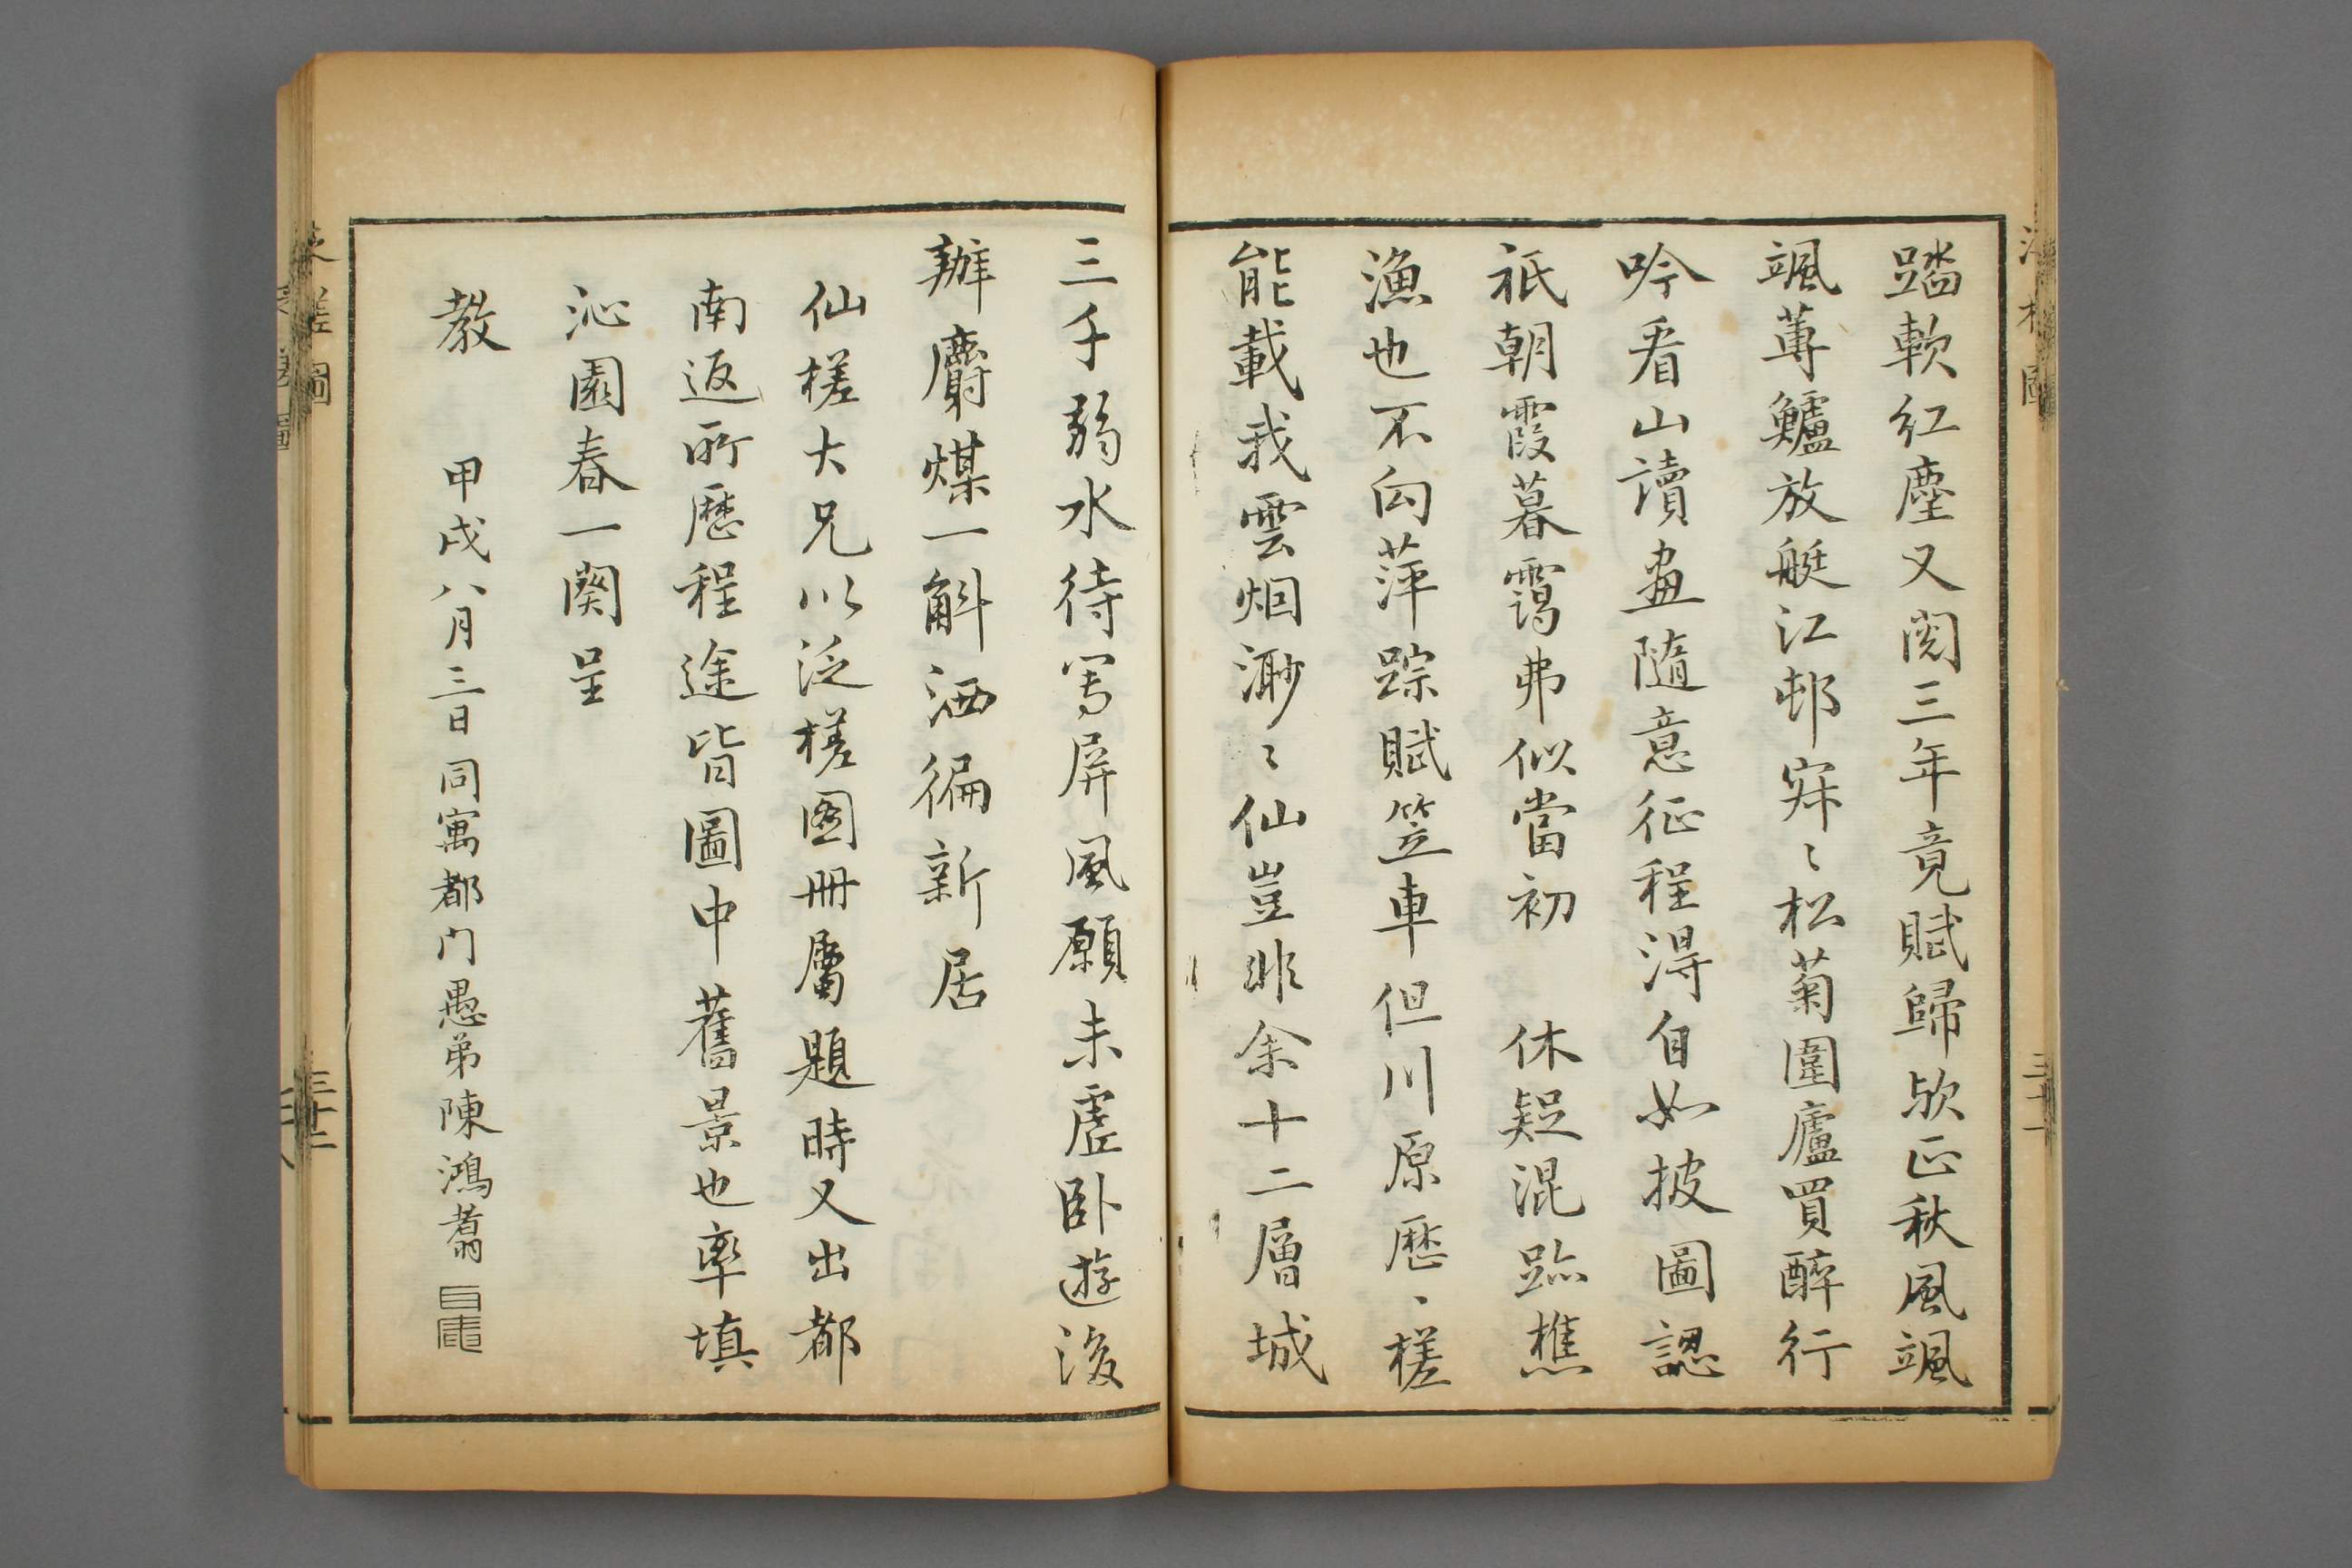 踏軟紅塵又閱三年竟賦歸歟正秋風颯
颯蓴鱸放艇江邨寂〻松菊圍廬買醉行
吟看山讀畫隨意征程得自如披圖認
祇朝霞暮靄弗似當初　休疑混跡樵
漁也不向萍踪賦笠車但川原歷、槎
能載我雲烟渺〻仙豈非余十二層城
三千弱水待寫屏風願未虛卧遊後
辦麝煤一斛洒徧新居
仙槎大兄以泛槎图冊屬題時又出都
南返所歷程途皆圖中舊景也率填
沁園春一闋呈
教　甲戌八月三日同寓都门愚弟陳鴻翥